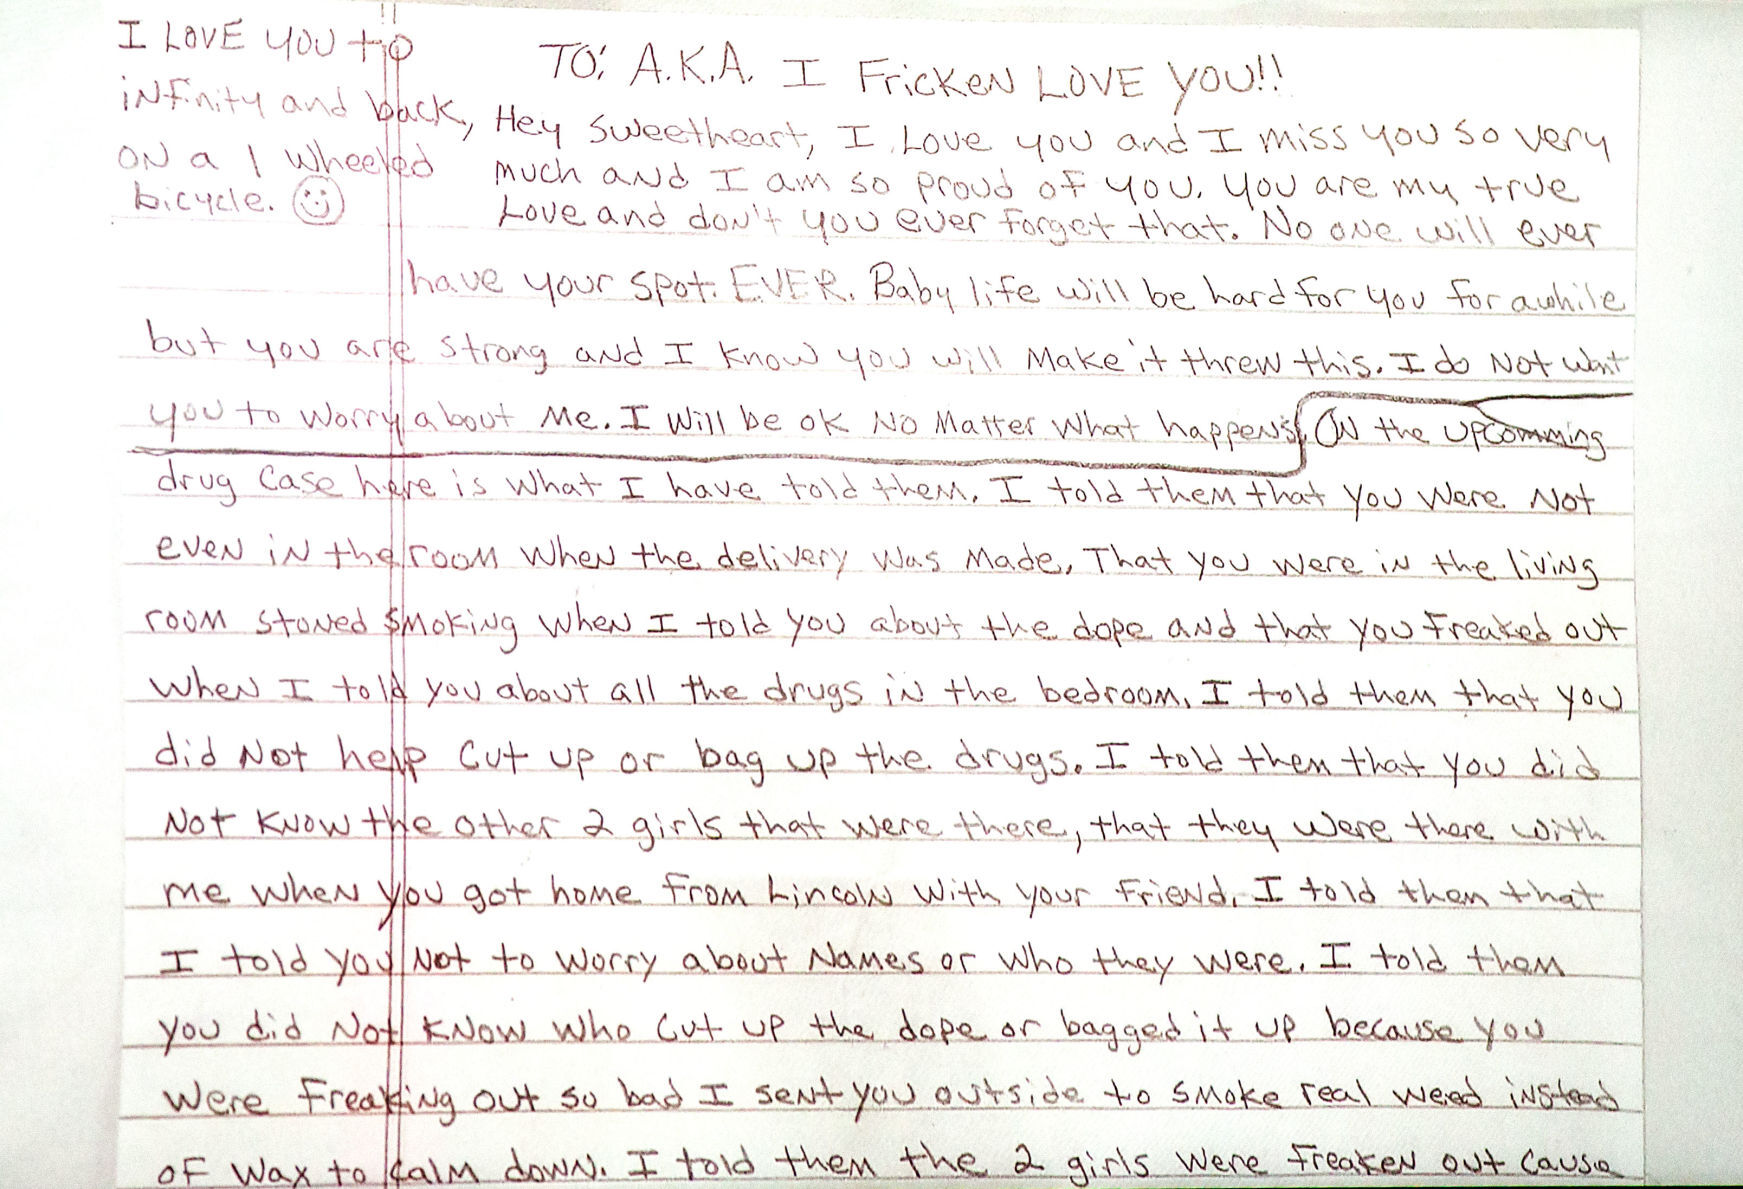 I LOVE YOU to
infinity and back,
ON a 1 wheeled
bicycle.
!!
TO: A.K.A. I Fricken LOVE YOU!!
Hey Sweetheart, I Love you and I miss you so very
much and I am so proud of you. You are my true
Love and don't you ever forget that. No one will ever
have your spot. EVER. Baby life will be hard for you for awhile
but you are strong and I know you will Make it threw this. I do Not want
you to worry about Me. I will be ok No Matter what happens. ON the upcomming
drug case here is what I have told them. I told them that you were Not
even in the room when the delivery was Made. That you were in the living
room stoned smoking when I told you about the dope and that you freaked out
when I told you about all the drugs in the bedroom. I told them that you
did Not help cut up or bag up the drugs. I told them that you did
Not know the other 2 girls that were there, that they were there with
me when you got home from Lincoln with your friend. I told them that
I told you Not to worry about Names or who they were. I told them
you did Not know who cut up the dope or bagged it up because you
were freaking out so bad I sent you outside to smoke real weed instead
of wax to calm down. I told them the 2 girls were freaken out cause